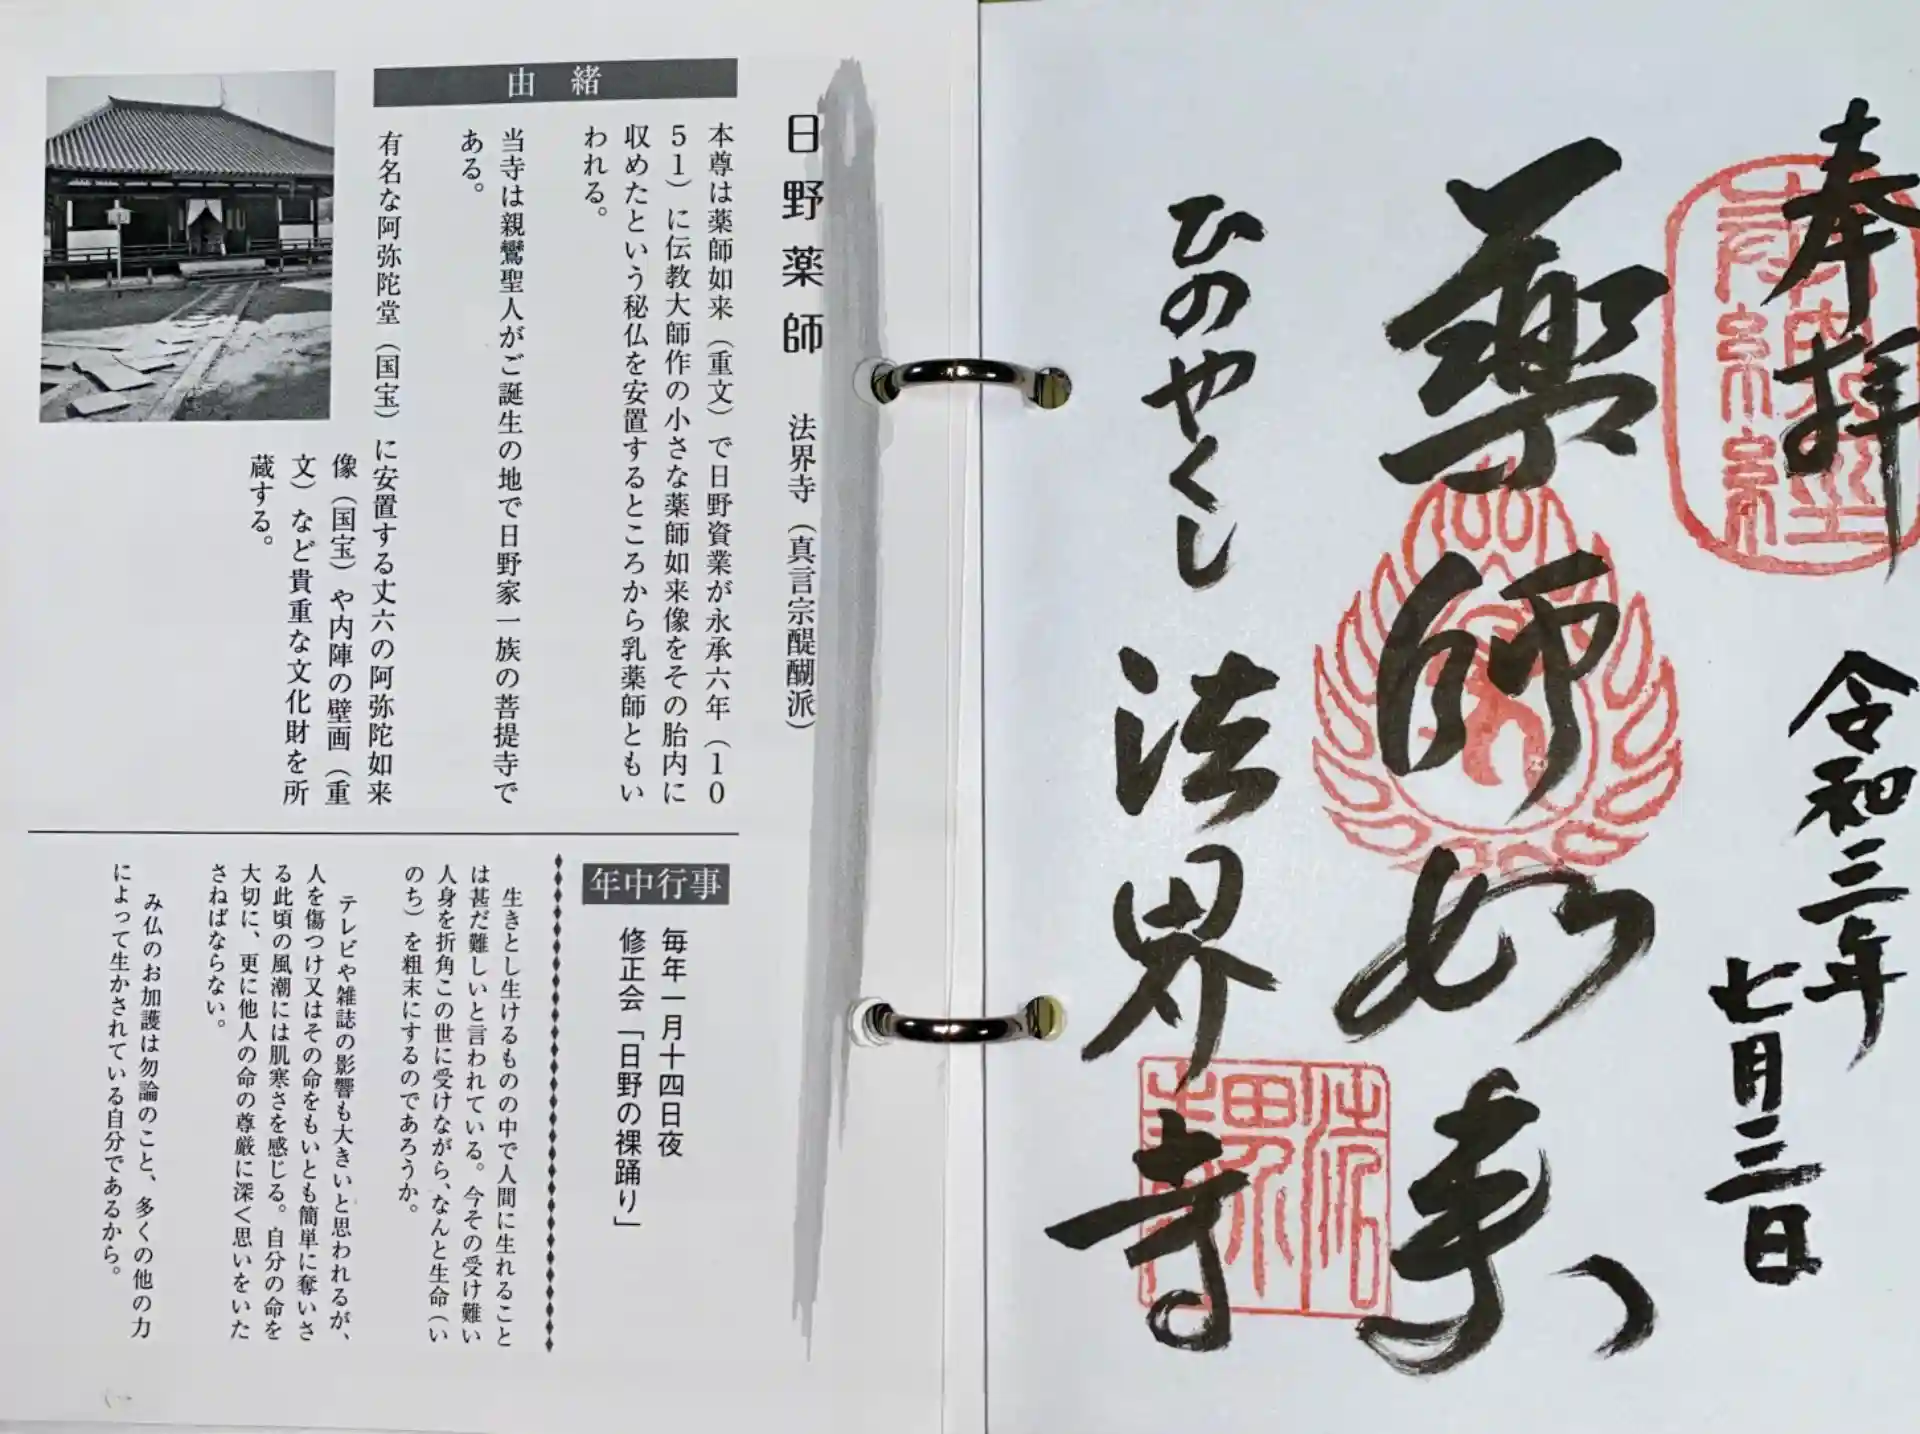 奉拝
令和三年
七月三日
薬師如来
ひのやくし
法界寺
法界寺
日野薬師 法界寺（真言宗醍醐派）
由緒
本尊は薬師如来（重文）で日野資業が永承六年（10
51）に伝教大師作の小さな薬師如来像をその胎内に
収めたという秘仏を安置するところから乳薬師ともい
われる。
当寺は親鸞聖人がご誕生の地で日野家一族の菩提寺で
ある。
有名な阿弥陀堂（国宝）に安置する丈六の阿弥陀如来
像（国宝）や内陣の壁画（重
文）など貴重な文化財を所
蔵する。
年中行事
毎年一月十四日夜
修正会「日野の裸踊り」
生きとし生けるものの中で人間に生れること
は甚だ難しいと言われている。今その受け難い
人身を折角この世に受けながら、なんと生命（い
のち）を粗末にするのであろうか。
テレビや雑誌の影響も大きいと思われるが、
人を傷つけ又はその命をもいとも簡単に奪いさ
る此頃の風潮には肌寒さを感じる。自分の命を
大切に、更に他人の命の尊厳に深く思いをいた
さねばならない。
み仏のお加護は勿論のこと、多くの他の力
によって生かされている自分であるから。